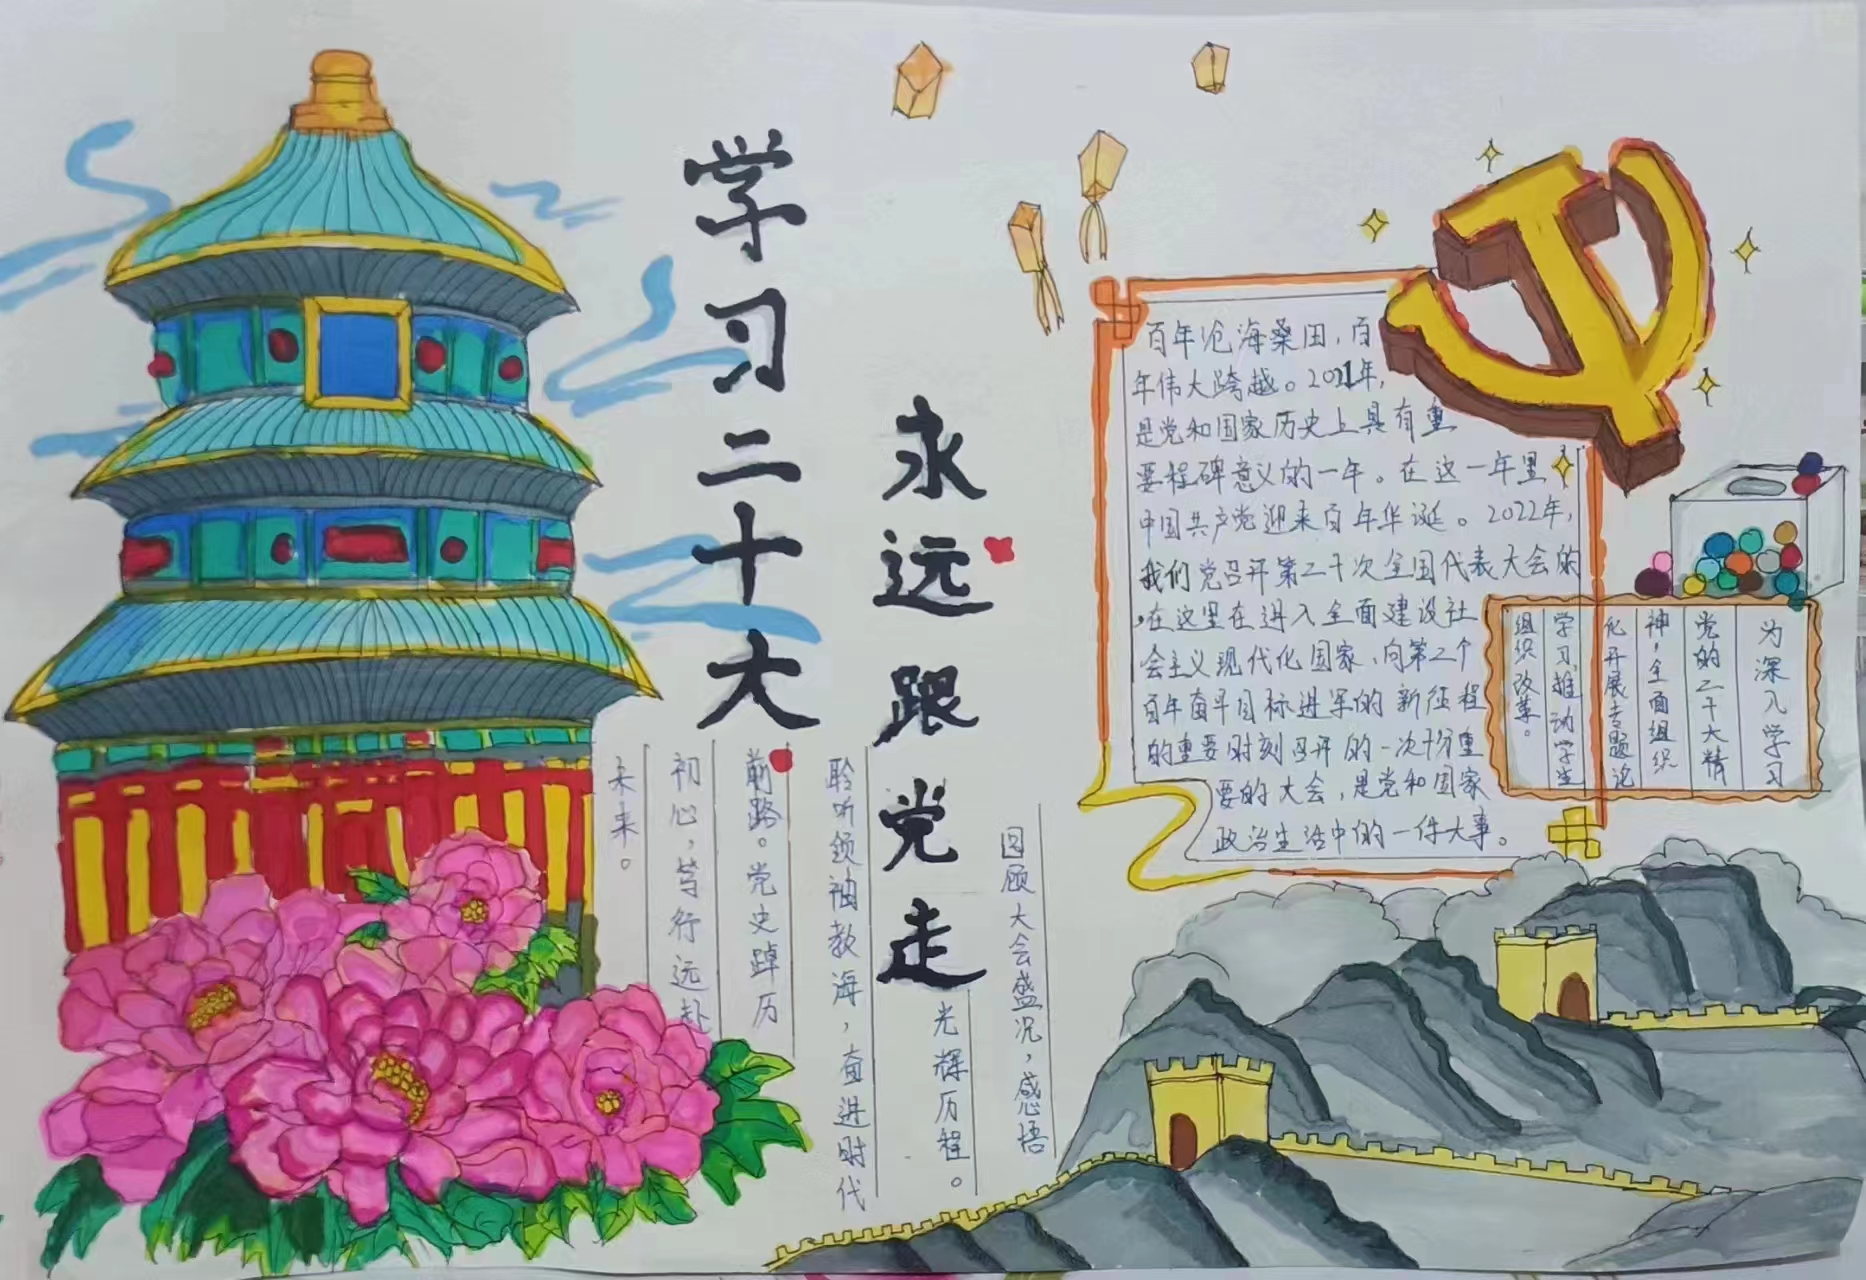 学习二十大
永远跟党走
回顾大会盛况，感悟
光辉历程。
聆听领袖教海，奋进时代
前路。党史踔历
初心，笃行远赴
未来。
百年沧海桑田，百
年伟大跨越。2021年，
是党和国家历史上具有重
要程碑意义的一年。在这一年里
中国共产党迎来百年华诞。2022年，
我们党召开第二十次全国代表大会的
，在这里在进入全面建设社
会主义现代化国家、向第二个
百年奋斗目标进军的新征程
的重要时刻召开的一次十分重
要的大会，是党和国家
政治生活中的一件大事。
为深入学习
党的二十大精
神，全面组织
化开展专题论
学习，推动学生
组织改革。